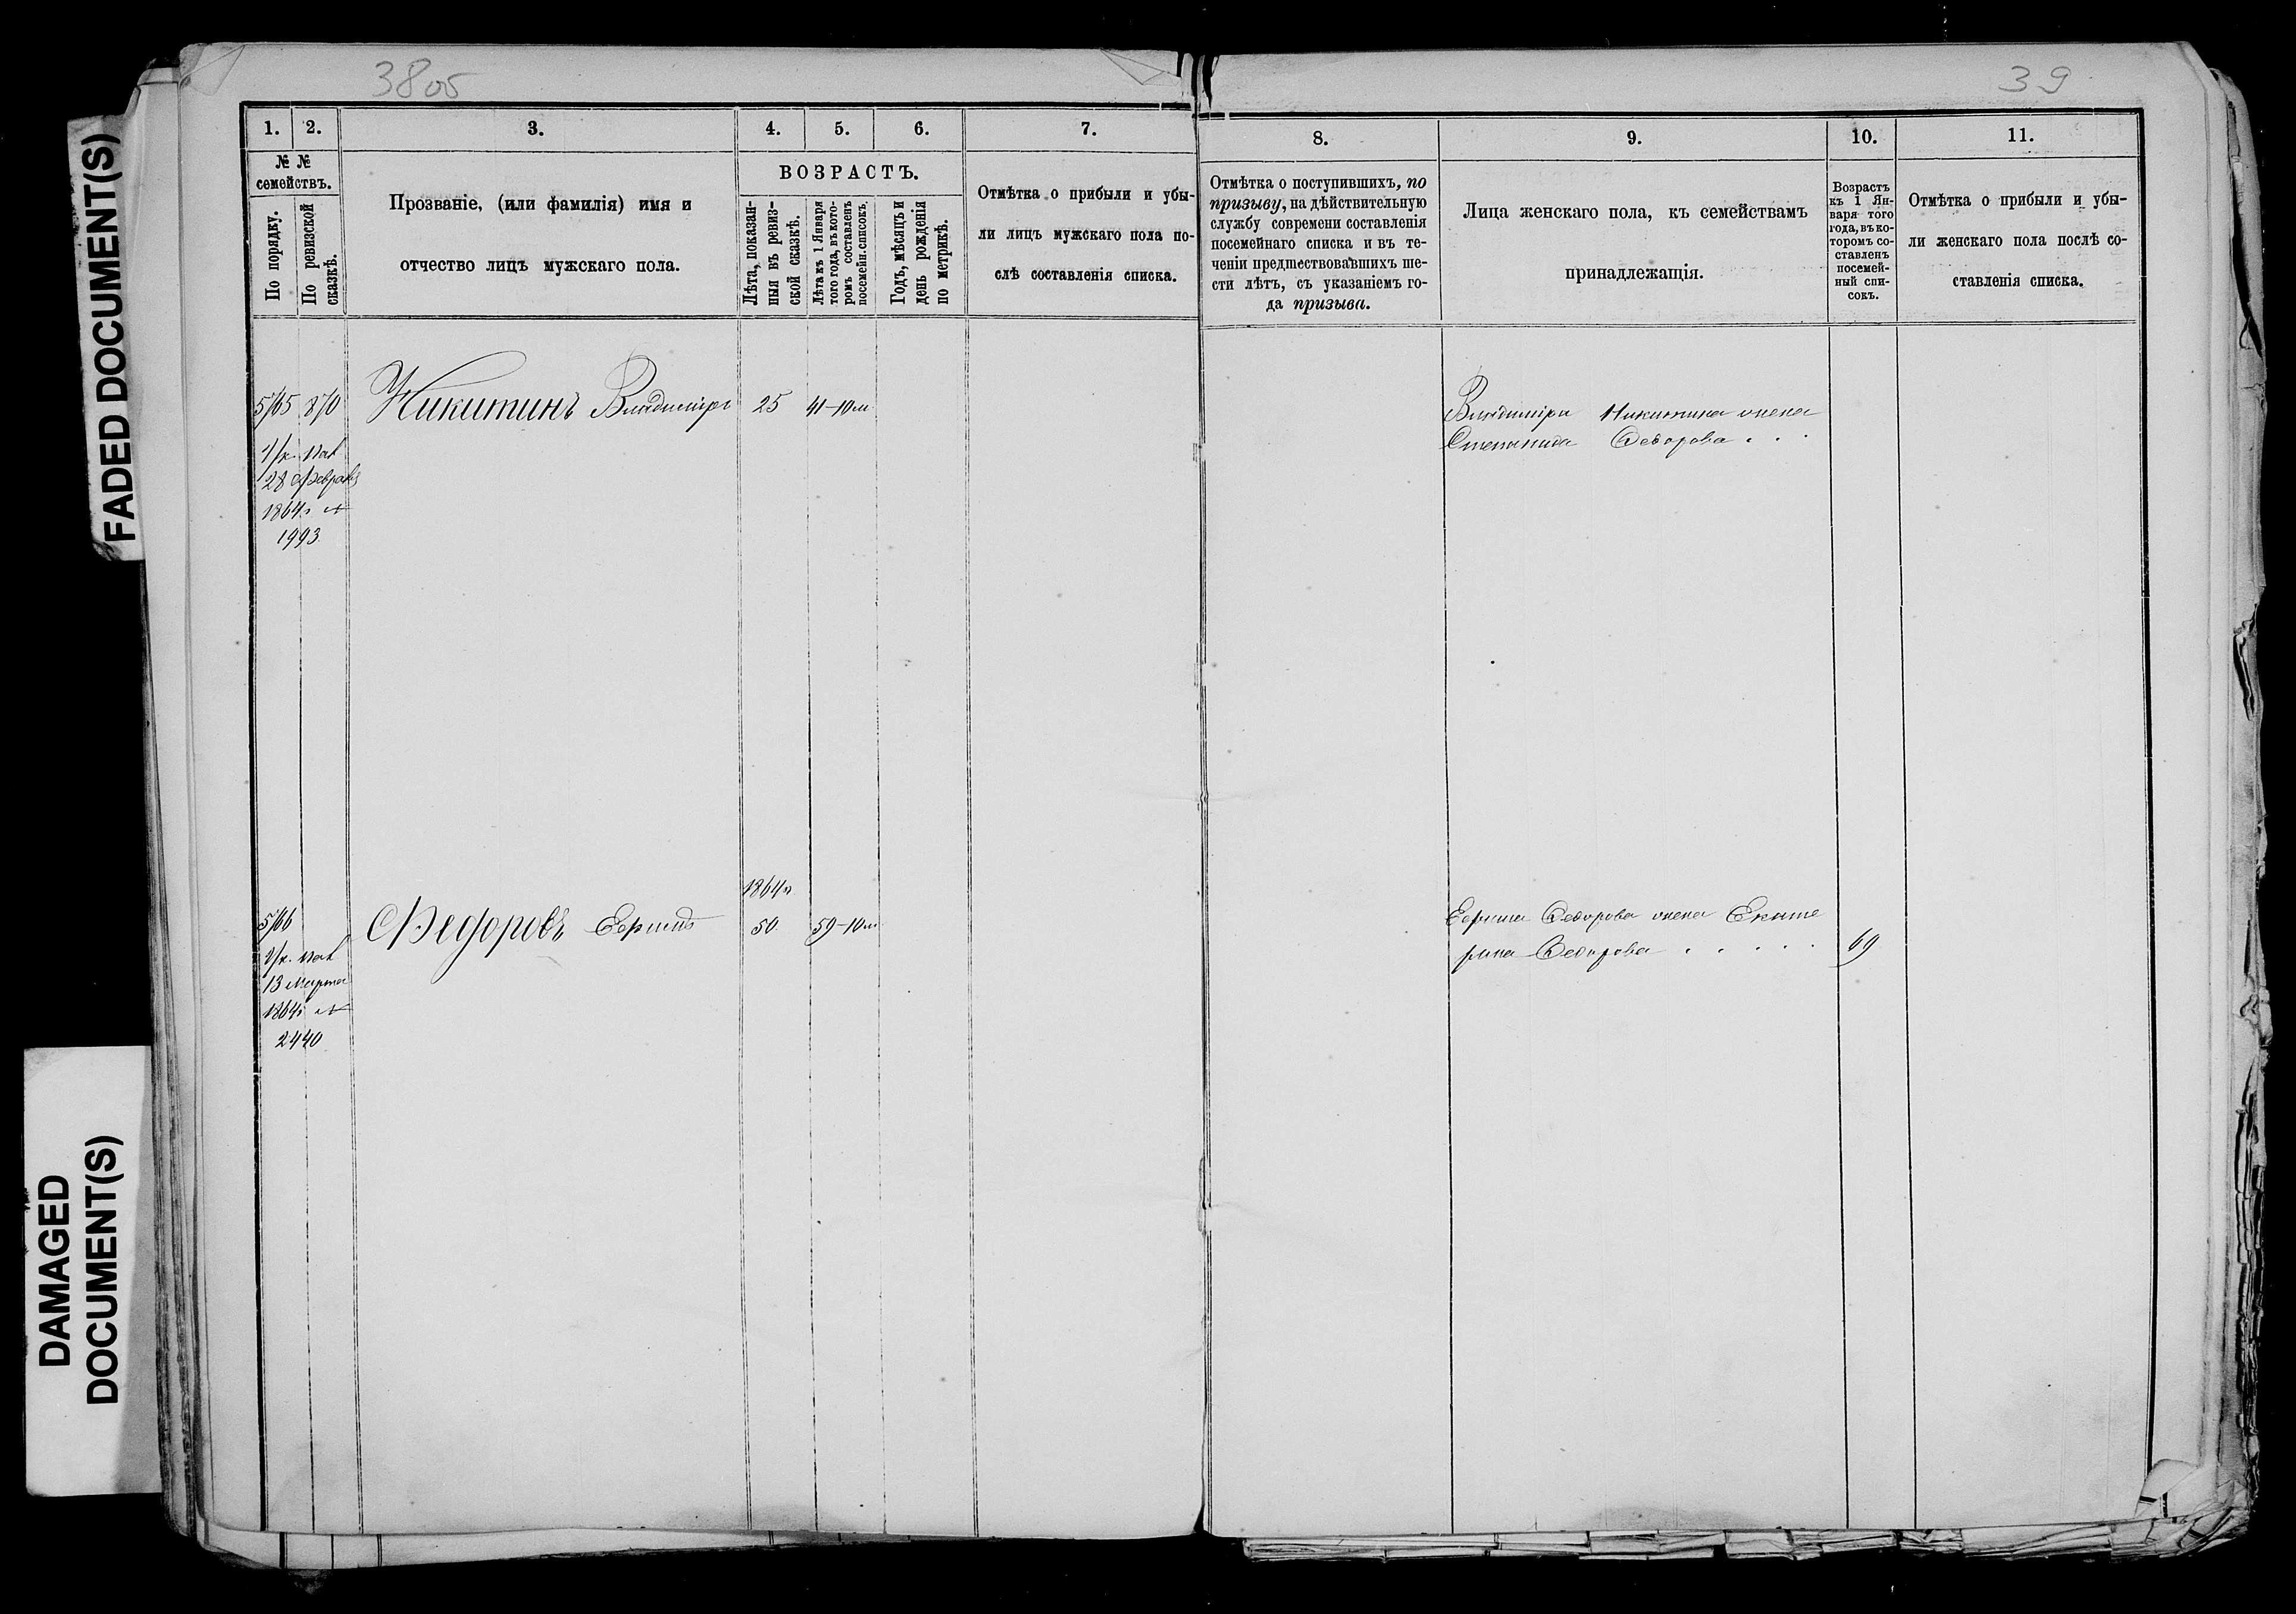 FADED DOCUMENT(S)
DAMAGED
DOCUMENT(S)
38 об
39
1.
2.
3.
4.
5.
6.
7.
№ №
семействъ.
По порядку.
По ревизской
сказкѣ.
Прозваніе, (или фамилія) имя и
отчество лицъ мужскаго пола.
ВОЗРАСТЪ.
Лѣта, показан-
ныя въ ревиз-
ской сказкѣ.
Лѣта къ 1 Января
того года, въ кото-
ромъ составленъ
посемейн. списокъ.
Годъ, мѣсяцъ и
день рожденія
по метрикѣ.
Отмѣтка о прибыли и убы-
ли лицъ мужскаго пола по-
слѣ составленія списка.
8.
9.
10.
11.
Отмѣтка о поступившихъ, по
призыву, на дѣйствительную
службу современи составленія
посемейнаго списка и въ те-
ченіи предшествовавшихъ ше-
сти лѣтъ, съ указаніемъ го-
да призыва.
Лица женскаго пола, къ семействамъ
принадлежащія.
Возрастъ
къ 1 Ян-
варя того
года, въ ко-
торомъ со-
ставленъ
посемей-
ный спи-
сокъ.
Отмѣтка о прибыли и убы-
ли женскаго пола послѣ со-
ставленія списка.
Никитинъ Владиміръ 25 41-10м
28
1864г №
1993
Владиміра Никитина жена
Степанида Ѳедорова . . .
1864г
Ѳедоровъ 50 59-10м
13 Марта
1864г №
2440
Ѳедорова жена Екате
рина Ѳедорова . . . . . 69